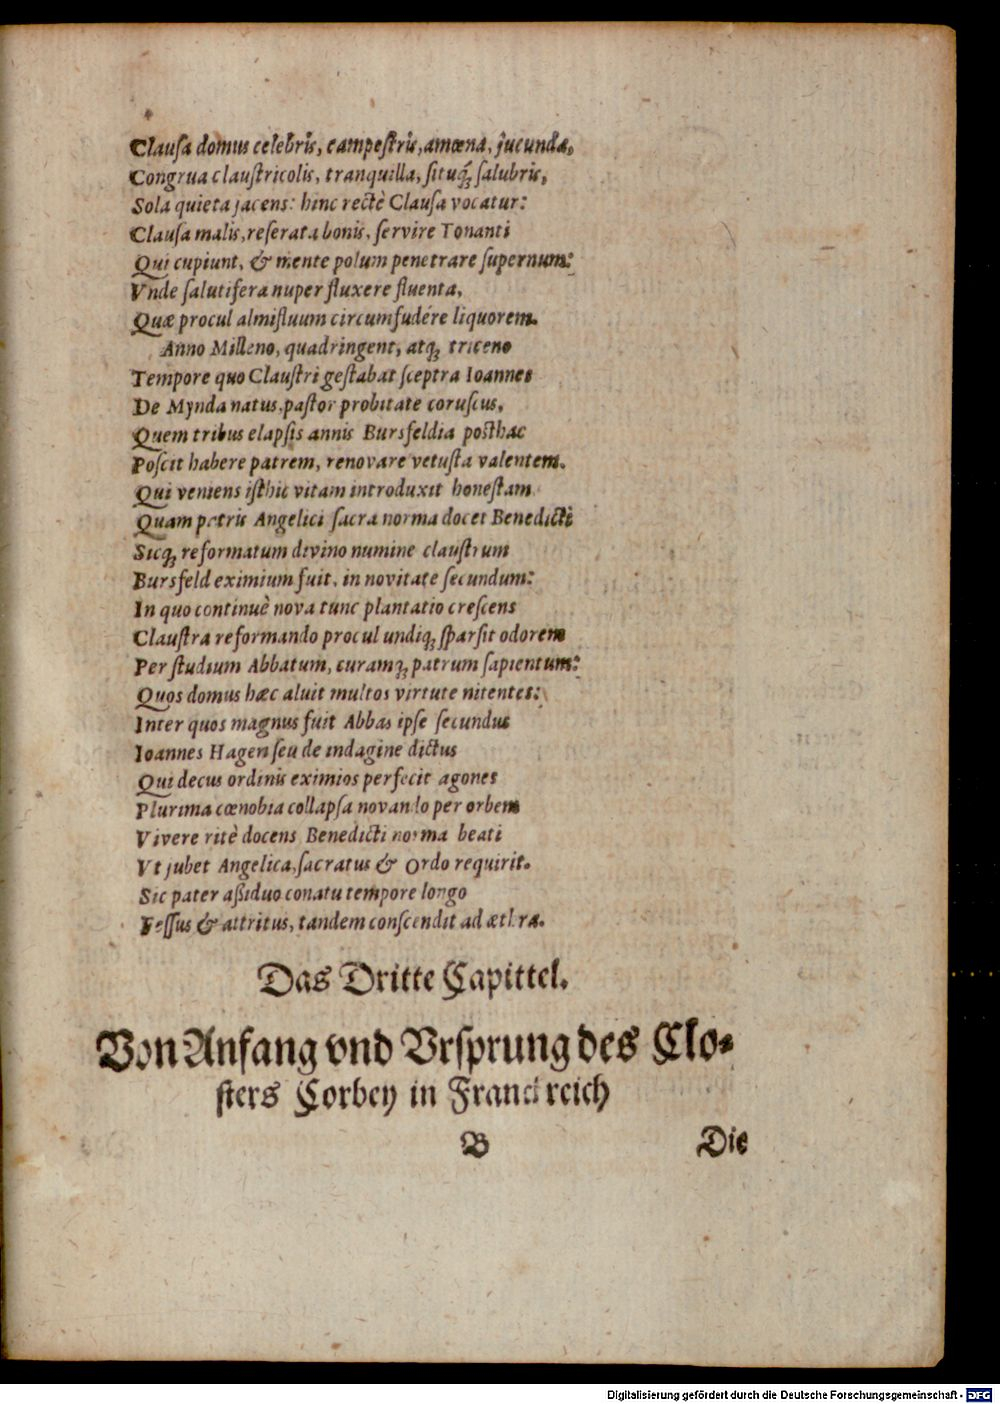 Clauſa domus celebris, campeſtris, amœna, jucunda,
Congrua clauſtricolis, tranquilla, ſituq́; ſalubris,
Sola quieta jacens: hinc rectè Clauſa vocatur:
Clauſa malis, reſerata bonis, ſervire Tonanti
Qui cupiunt, & mente polum penetrare ſupernum:
Vnde ſalutifera nuper fluxere fluenta,
Quæ procul almifluum circumfudére liquorem.
Anno Milleno, quadringent, atq; triceno
Tempore quo Clauſtri geſtabat ſceptra Ioannes
De Mynda natus, paſtor probitate coruſcus,
Quem tribus elapſis annis Bursfeldia poſthac
Poſcit habere patrem, renovare vetuſta valentem.
Qui veniens iſthic vitam introduxit honeſtam
Quam patris Angelici ſacra norma docet Benedicti
Sicq; reformatum divino numine clauſtrum
Bursfeld eximium fuit, in novitate ſecundum:
In quo continuè nova tunc plantatio creſcens
Clauſtra reformando procul undiq; ſparſit odorem
Per ſtudium Abbatum, curamq́; patrum ſapientum:
Quos domus hæc aluit multos virtute nitentes:
Inter quos magnus fuit Abbas ipſe ſecundus
Ioannes Hagen ſeu de indagine dictus
Qui decus ordinis eximios perfecit agones
Plurima cœnobia collapſa novando per orbem
Vivere ritè docens Benedicti norma beati
Vt jubet Angelica, ſacratus & Ordo requirit.
Sic pater aſſiduo conatu tempore longo
Feſſus & attritus, tandem conſcendit ad æthra.
Das Dritte Capittel.
Von Anfang vnd Vrſprung des Clo-
ſters Corbey in Franckreich
B Die
Digitalisierung gefördert durch die Deutsche Forschungsgemeinschaft - DFG